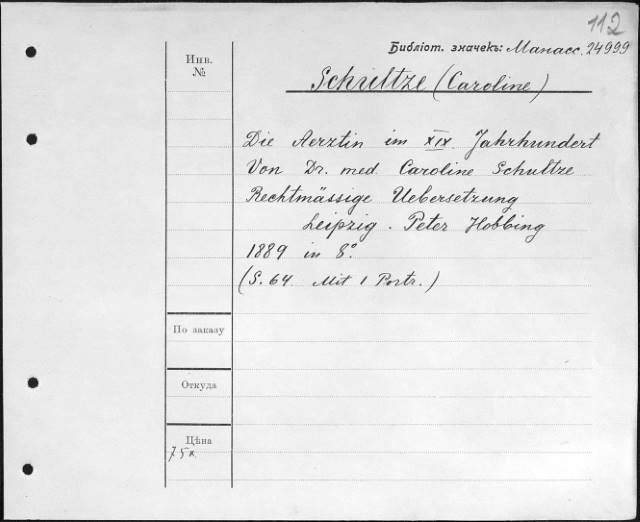 112
Библіот. значекъ: Манасс. 24999
Инв.
№
Schultze (Caroline)
Die Aerztin im XIX. Jahrhundert
Von Dr. med. Caroline Schultze
Rechtmässige Uebersetzung
Leipzig. Peter Hobbing
1889 in 8°.
(S. 64 Mit 1 Portr.)
По заказу
Откуда
Цѣна
75к